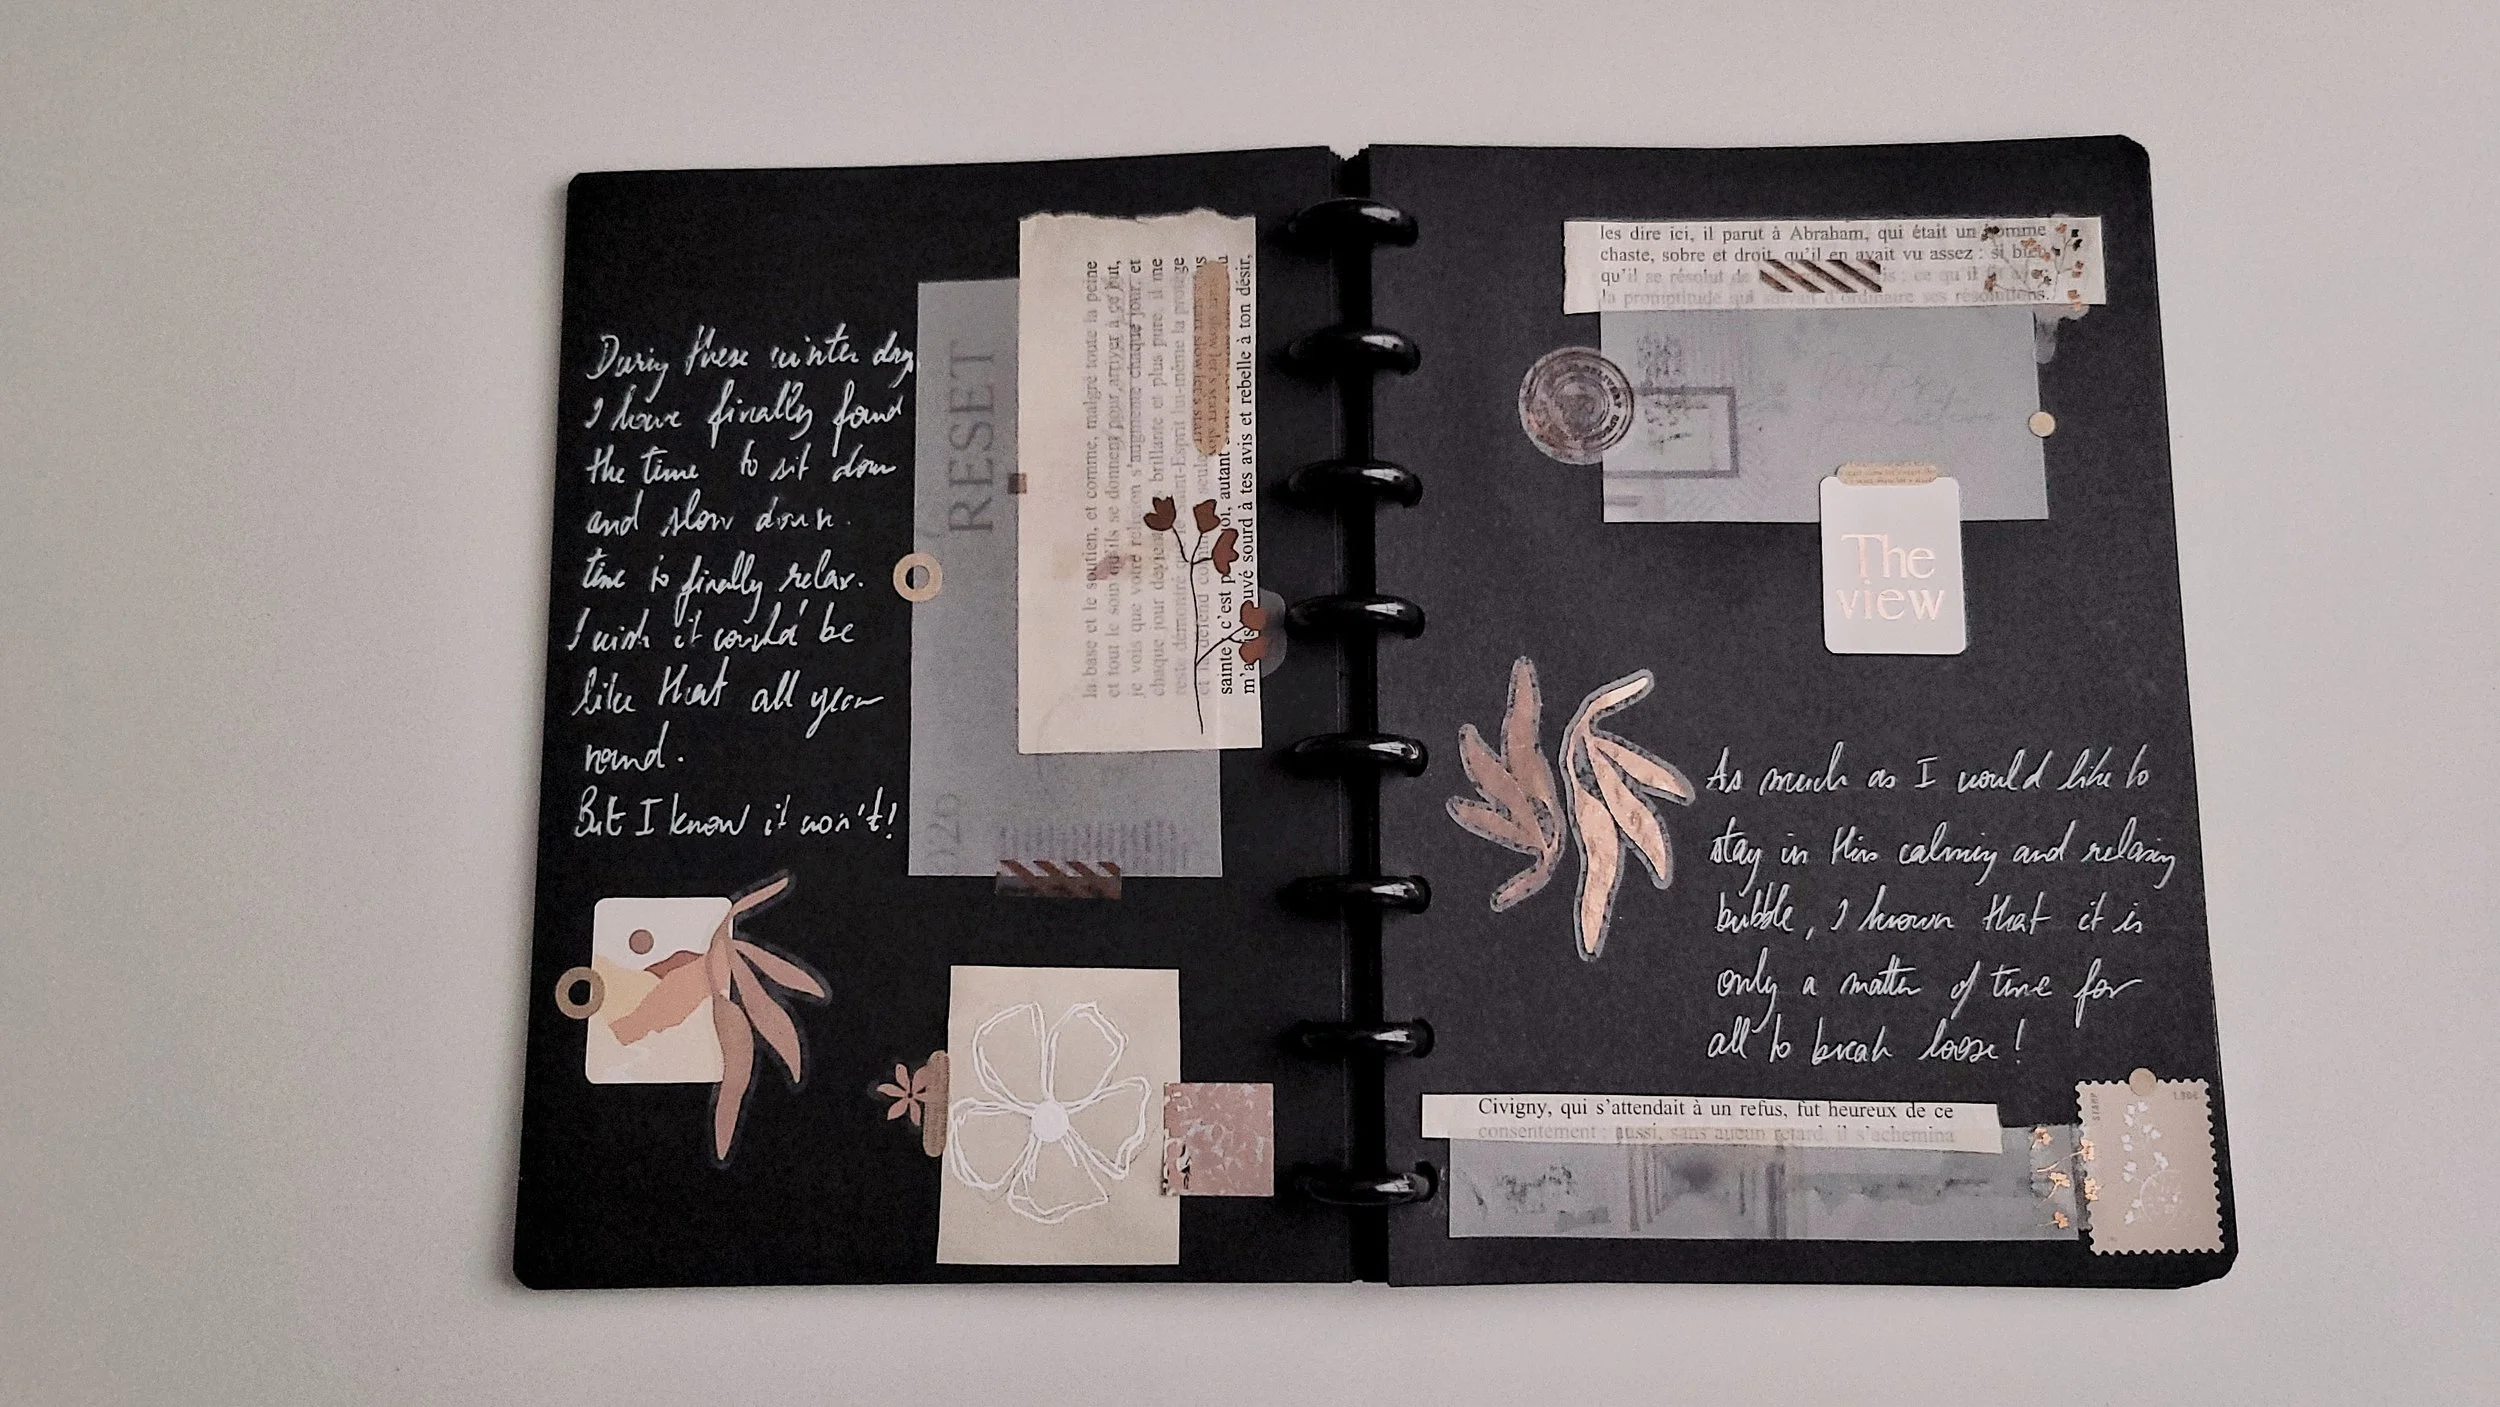 During these winter days
I have finally found
the time to sit down
and slow down.
time to finally relax.
I wish it would be
like that all year
round.
But I know it won't!
RESET
la base et le soutien, et comme, malgré toute la peine
et tout le soin qu'ils se donnent pour arriver à ce but,
je vois que votre religion s'augmente chaque jour, et
chaque jour devient brillante et plus pure, il me
reste démontré que le Saint-Esprit lui-même la protège
et la défend
sainte c'est pourquoi, autant
m'a trouvé sourd à tes avis et rebelle à ton désir,
les dire ici, il parut à Abraham, qui était un homme
chaste, sobre et droit, qu'il en avait vu assez : si bien
qu'il se résolut de : ce qu'il fit avec
la promptitude qui suivait d'ordinaire ses résolutions.
The
view
As much as I would like to
stay in this calming and relaxing
bubble, I known that it is
only a matter of time for
all to break loose!
Civigny, qui s'attendait à un refus, fut heureux de ce
consentement : aussi, sans aucun retard, il s'achemina
STAMP